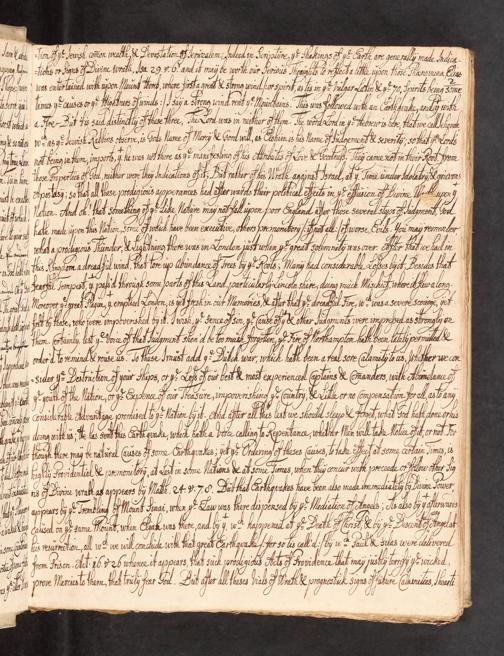 tion of yᵉ Jewish comon wealth, & Devastation of Jerusalem; Indeed in Scripture, yᵉ shakings of yᵉ Earth are generally made Indica-
-tions or Signs of Divine wrath, Isa. 29 v 6. and it may be worth our Serious thoughts to reflect a little upon those Elias
was entertained with upon Mount Horeb, where first a great & strong wind, (or spirit, as tis in yᵉ vulgar Latin & yᵉ 70, Spirits being some
times yᵉ causes or yᵉ of winds:) I say a strong wind rent yᵉ Mountains. This was followed with an Earthquake, and yᵗ with
a Fire. But tis said distinctly of these three, The Lord was in neither of them. The word Lord in yᵉ Hebrew is that we call Jehovah
wᶜʰ as yᵉ Jewish Rabbins observe, is Gods Name of Mercy & Good will, as Elohim is his Name of Judgement & severity, so that yᵉ Lords
not being in them, imports, yᵗ he was not there as yᵉ manifesting of his Attributes of Love & Goodness. They came not in their Source from
those Properties of God, neither were they Indications of it; But rather of his Wrath against Israel, at yᵗ Time under Idolatry & grievous
Apostasy; so that all these prodigious appearances had afterwards their political effects in yᵉ effusion of Divine Wrath upon yᵗ
Nation. And oh that something of yᵉ like Nature may not fall upon poor England, after those several steps of Judgement, God
hath made upon this Nation, some of which have been executive, others premonitory (if not all) of worse Evils. You may remember
what a prodigious Thunder, & Lightning there was in London just when yᵉ great solemnity was over. After that we had in
this Kingdom a dreadful wind, that tore up Abundance of Trees by yᵉ Roots; Many had considerable Losses by it. Besides that
fearful Tempest, yᵗ pass'd through some parts of this Land, particularly Lincolnshire, doing much Mischief, where it flew along.
Moreover yᵉ great Plague, yᵗ emptied London, is yet fresh in our Memories; & after that yᵉ dreadful Fire, wᶜʰ was a severe scourge, yet
felt by those, who were impoverished by it. I wish, yᵉ sence of sin, yᵉ cause of that & other Judgments were impressed as strongly on
them. Certainly, lest yᵉ voice of that Judgement should be too much forgotten, yᵉ Fire of Northampton hath been lately permitted &
order'd to remind & rouse us. To these I must add yᵉ Dutch war, which hath been a real sore Calamity to us, whether we con-
-sider yᵉ Destruction of your Ships, or yᵉ Loss of our best & most experienced Captains & Comanders, with Abundance of
yᵉ youth of the Nation, or yᵉ Expence of our Treasure, impoverishing yᵉ Country, & Little or no Compensation for all, as to any
considerable Advantage promised to yᵉ Nation by it. And after all this lest we should sleep & forget, what God hath done, or his
doing with us; He has sent this Earthquake, which hath a Voice calling to Repentance, whether Men will take Notice of it, or not. For
though there may be natural Causes of some Earthquakes; yet yᵉ Ordering of these Causes, to take effect at some certain Times, is
highly Providential & premonitory, at lest in some Nations & at some Times, when they concur with, preceede, or follow other Sig-
ns of Divine wrath as appears by Matth. 24 v 7. 8. But that Earthquakes have been also made immediately by Divine Power
appears by yᵉ Trembling of Mount Sinai, when yᵉ Law was there dispensed by yᵉ Mediation of Angels; As also by yᵉ afterwards
caused on yᵉ same Mount, when Elijah was there, and by yᵗ, wᶜʰ happened at yᵉ Death of Christ, & by yᵉ Descent of Angel at
his resurrection, all wᶜʰ we will conclude with that great Earthquake (for so tis call'd) by wᶜʰ Paul & Silas were delivered
from Prison Act. 16 v 26 whence it appears, that such prodigious Acts of Providence that may justly terrify yᵉ wicked,
prove Mercies to them, that truly fear God. But after all these Vials of Wrath & prognostick signs of future Calamities, I heartily